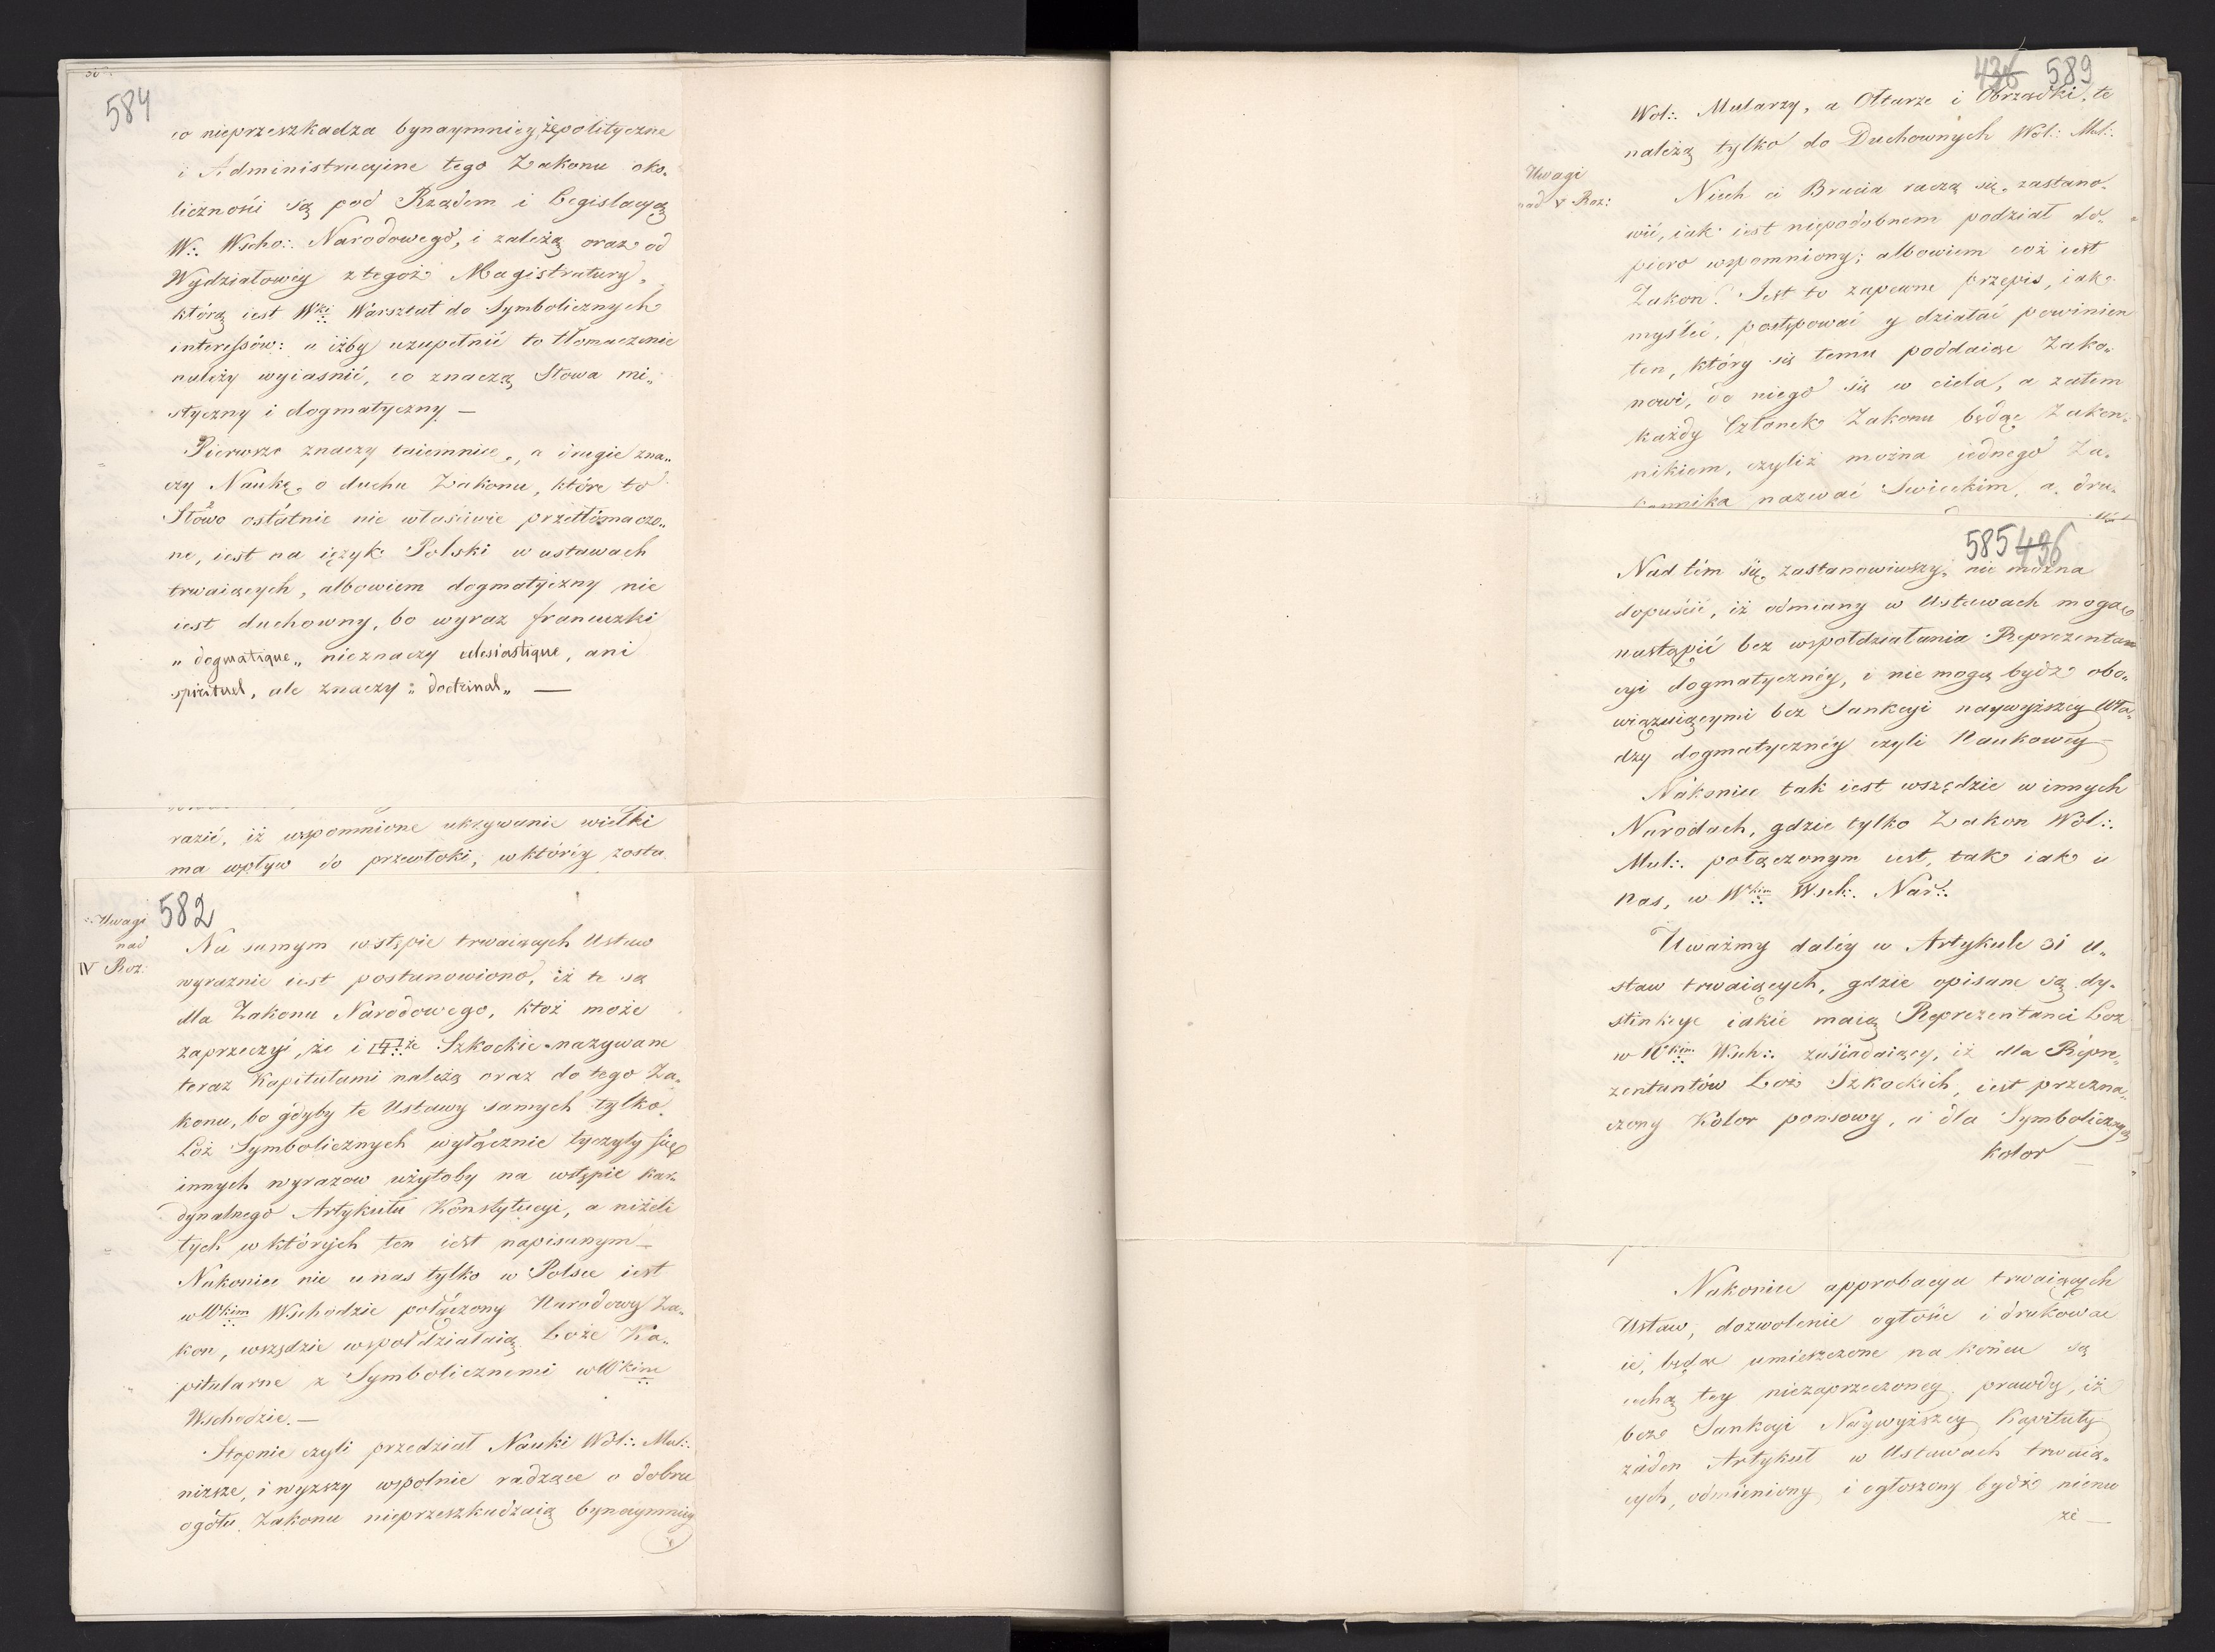 584
co nieprzeszkadza bynaymniey, że polityczne
i Administracyine tego Zakonu oko„
liczności są pod Rządem i Legislacyą
W∴ Wscho∴ Narodowego, i zależą oraz od
Wydziałowey z tegoż Magistratury,
którą iest Wki Warsztat do Symbolicznych
interessów: a iżby uzupełnić to tłomaczenie
należy wyiasnić, co znaczą Słowa mi„
styczny i dogmatyczny —
Pierwsze znaczy taiemnice, a drugie zna„
czy Naukę o duchu Zakonu, które to
Słowo ostatnie nie właściwie przetłómaczo„
ne, iest na ięzyk Polski w ustawach
trwaiących, albowiem dogmatyczny nie
iest duchowny, bo wyraz francuzki
„ dogmatique „ nieznaczy eclesiastique, ani
spirituel, ale znaczy „ doctrinal „ —
razić, iż wspomnione ukrywanie wielki
ma wpływ do przewłoki, w którėy zosta
Uwagi
nad
IV Roz:
582
Na samym wstępie trwaiących Ustaw
wyraznie iest postanowiono, iż te są
dla Zakonu Narodowego, ktoż może
zaprzeczyć, że i Szkockie nazywane
teraz Kapitułami należą oraz do tego Za„
konu, bo gdyby te Ustawy samych tylko
Loż Symbolicznych wyłącznie tyczyły się
innych wyrazow użytoby na wstępie kar„
dynalnego Artykułu Konstytucyi, a niżeli
tych w których ten iest napisanym —
Nakoniec nie u nas tylko w Polsce iest
w Wkim Wschodzie połączony Narodowy Za„
kon, wszędzie wspołdziałaią Loże Ka„
pitularne z Symbolicznemi w Wkim
Wschodzie. —
Stopnie czyli przedział Nauki Wol∴ Mul∴
niższe, i wyższy wspolnie radzące o dobru
ogółu Zakonu nieprzeszkadzaią bynaymniey
436 589
Wol∴ Mularzy, a Ołtarze i Obrządki, te
należą tylko do Duchownych Wol∴ Mul∴
Uwagi
nad V Roz:
Niech ci Bracia raczą się zastano„
wić, iak iest niepodobnem podział do„
piero wspomniony; albowiem coż iest
Zakon? Jest to zapewne przepis, iak
mysleć, postępować y działać powinien
ten, który się temu poddaiąc Zako„
nowi, do niego się w ciela, a zatem
każdy Członek Zakonu będąc Zakon„
nikiem, czyliż można iednego Za„
konnika nazwać Swieckim, a dru„
585 436
Nad tém się zastanowiwszy, nie można
dopuścić, iż odmiany w Ustawach mogą
nastąpić bez wspołdziałania Reprezentan
cyi dogmatycznéy, i nie mogą bydz obo„
wiązuiącymi bez Sankcyi naywyższéy Wła„
dzy dogmatycznéy czyli Naukowéy —
Nakoniec tak iest wszędzie w innych
Narodach, gdzie tylko Zakon Wol∴
Mul∴ połączonym iest, tak iak u
Nas, w Wkim Wsch∴ Nar∴
Uważmy daléy w Artykule 31 U„
staw trwaiących, gdzie opisane są dy„
stinkcye iakie maią Reprezentanci Loz
w Wkim Wsch∴ zasiadaiący, iż dla Repre„
zentantów Loż Szkockich, iest przezna„
czony Kolor ponsowy, a dla Symbolicznych
kolor —
Nakoniec approbacya trwaiących
Ustaw, dozwolenie ogłosić i drukować
ie, będąc umieszczone na końcu są
cechą tey niezaprzeczoney prawdy, iż
bez Sankcyi Naywyższey Kapituły
żaden Artykuł w Ustawach trwaią„
cych, odmieniony i ogłoszony bydź niemo
że —